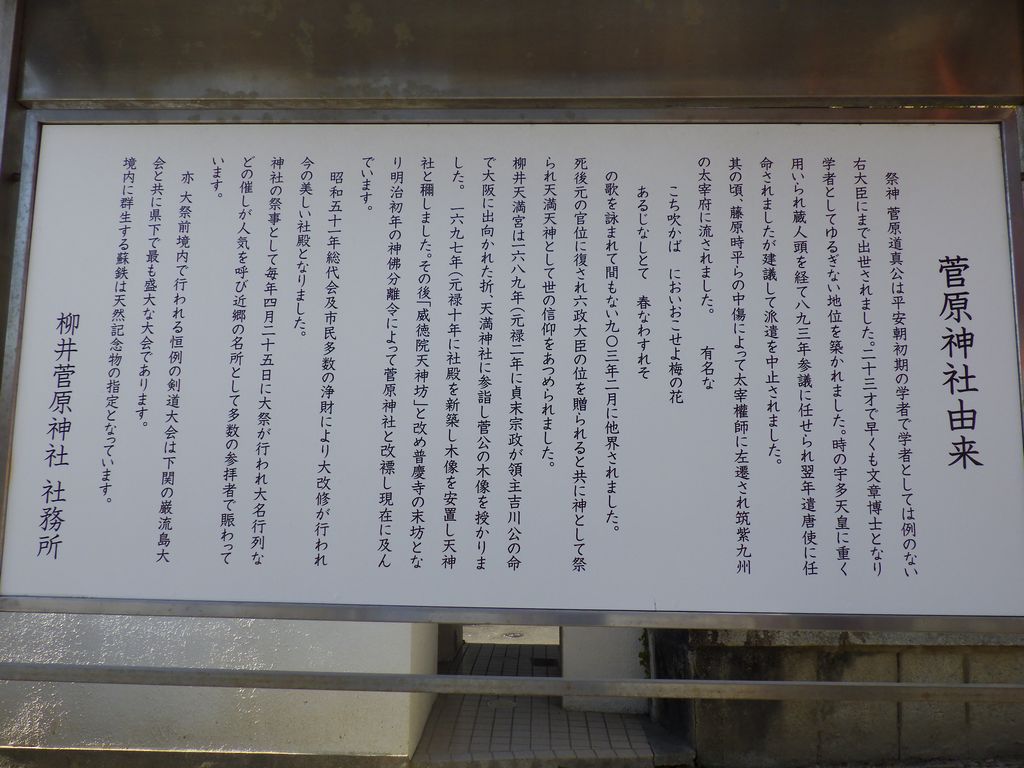 菅原神社由来
祭神 菅原道真公は平安朝初期の学者で学者としては例のない
右大臣にまで出世されました。二十三才で早くも文章博士となり
学者としてゆるぎない地位を築かれました。時の宇多天皇に重く
用いられ蔵人頭を経て八九三年参議に任せられ翌年遣唐使に任
命されましたが建議して派遣を中止されました。
其の頃、藤原時平らの中傷によって太宰權師に左遷され筑紫九州
の太宰府に流されました。 有名な
こち吹かば においおこせよ梅の花
あるじなしとて 春なわすれそ
の歌を詠まれて間もない九〇三年二月に他界されました。
死後元の官位に復され六政大臣の位を贈られると共に神として祭
られ天満天神として世の信仰をあつめられました。
柳井天満宮は一六八九年(元禄二年に貞末宗政が領主吉川公の命
で大阪に出向かれた折、天満神社に参詣し菅公の木像を授かりま
した。 一六九七年(元禄十年に社殿を新築し木像を安置し天神
社と稱しました。その後「威徳院天神坊」と改め普慶寺の末坊とな
り明治初年の神佛分離令によって菅原神社と改標し現在に及ん
でいます。
昭和五十一年総代会及市民多数の浄財により大改修が行われ
今の美しい社殿となりました。
神社の祭事として毎年四月二十五日に大祭が行われ大名行列な
どの催しが人気を呼び近郷の名所として多数の参拝者で賑わって
います。
亦 大祭前境内で行われる恒例の剣道大会は下関の巌流島大
会と共に県下で最も盛大な大会であります。
境内に群生する蘇鉄は天然記念物の指定となっています。
柳井菅原神社 社務所